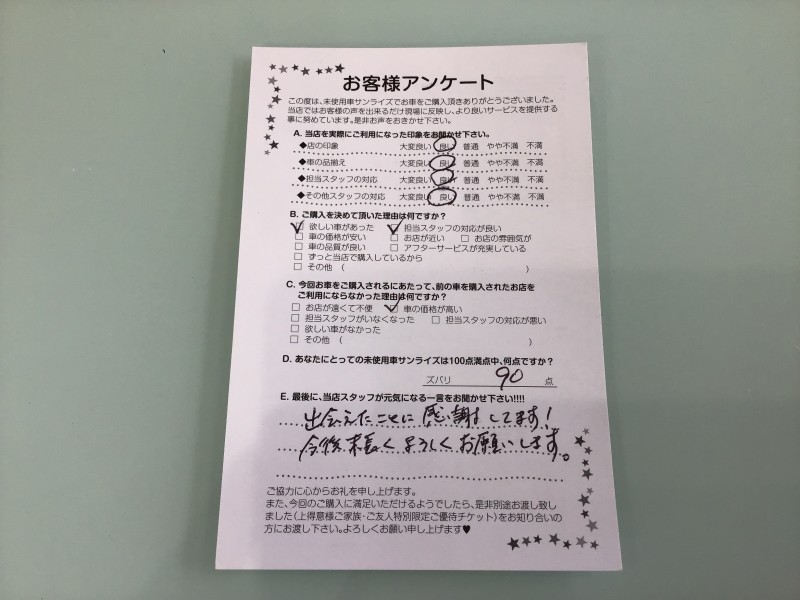 お客様アンケート
この度は、未使用車サンライズでお車をご購入頂きありがとうございました。
当店ではお客様の声を出来るだけ現場に反映し、より良いサービスを提供する
事に努めています。是非お声をおきかせ下さい。
A. 当店を実際にご利用になった印象をお聞かせ下さい。
◆店の印象 大変良い 良い 普通 やや不満 不満
◆車の品揃え 大変良い 良い 普通 やや不満 不満
◆担当スタッフの対応 大変良い 良い 普通 やや不満 不満
◆その他スタッフの対応 大変良い 良い 普通 やや不満 不満
B. ご購入を決めて頂いた理由は何ですか?
☑ 欲しい車があった ☑ 担当スタッフの対応が良い
□ 車の価格が安い □ お店が近い □ お店の雰囲気が
□ 車の品質が良い □ アフターサービスが充実している
□ ずっと当店で購入しているから
□ その他 ( )
C. 今回お車をご購入されるにあたって、前の車を購入されたお店を
ご利用にならなかった理由は何ですか?
□ お店が遠くて不便 ☑ 車の価格が高い
□ 担当スタッフがいなくなった □ 担当スタッフの対応が悪い
□ 欲しい車がなかった
□ その他 ( )
D. あなたにとっての未使用車サンライズは100点満点中、何点ですか?
ズバリ 90 点
E. 最後に、当店スタッフが元気になる一言をお聞かせ下さい!!!!
出会えたことに感謝してます!
今後末長くよろしくお願いします。
ご協力に心からお礼を申し上げます。
また、今回のご購入に満足いただけるようでしたら、是非別途お渡し致し
ました(上得意様ご家族・ご友人特別限定ご優待チケット)をお知り合いの
方にお渡し下さい。よろしくお願い申し上げます♥